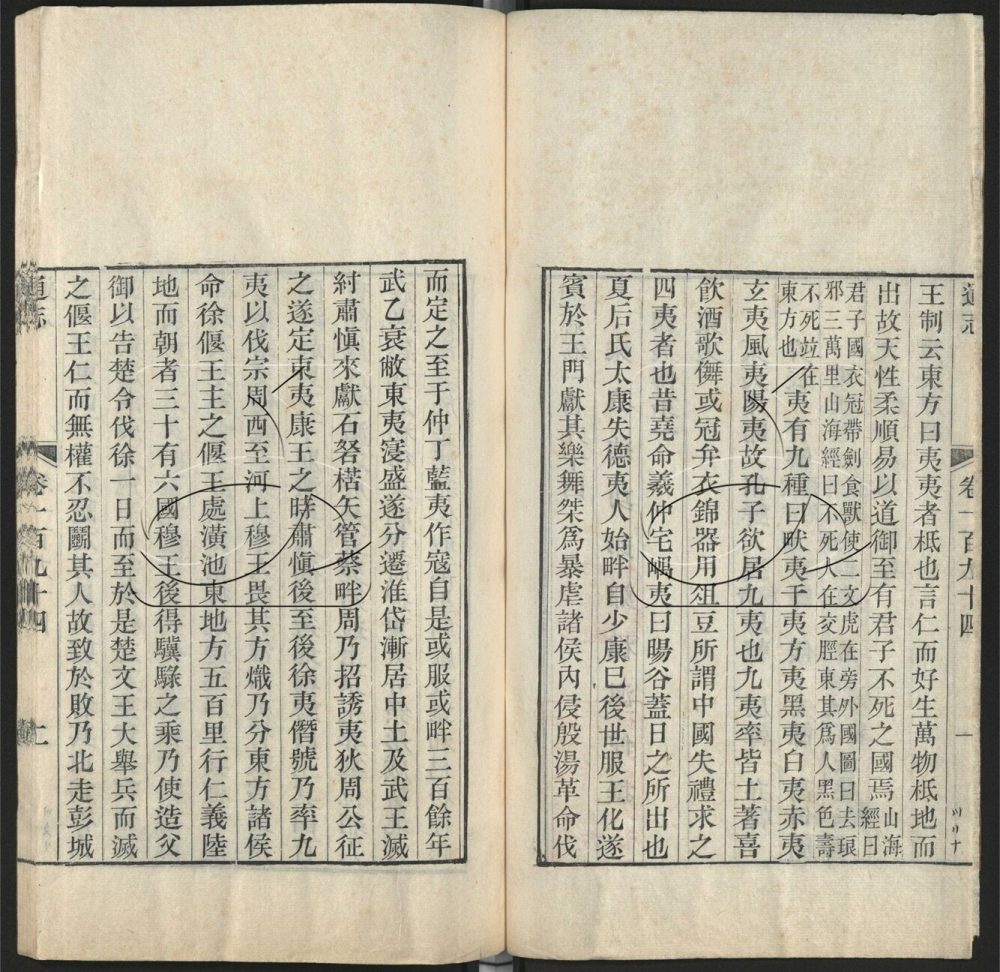 通志
卷一百九十四
一
王制云東方曰夷夷者柢也言仁而好生萬物柢地而
出故天性柔順易以道御至有君子不死之國焉山海
經曰
君子國衣冠帶劍食獸使二文虎在旁外國圖曰去琅
邪三萬里山海經曰不死人在交脛東其為人黑色壽
不死竝在
東方也夷有九種曰畎夷于夷方夷黃夷白夷赤夷
玄夷風夷陽夷故孔子欲居九夷也九夷率皆土著喜
飲酒歌儛或冠弁衣錦器用俎豆所謂中國失禮求之
四夷者也昔堯命羲仲宅嵎夷曰暘谷蓋日之所出也
夏后氏太康失德夷人始畔自少康已後世服王化遂
賓於王門獻其樂舞桀為暴虐諸侯內侵殷湯革命伐
而定之至于仲丁藍夷作寇自是或服或畔三百餘年
武乙衰敝東夷寖盛遂分遷淮岱漸居中土及武王滅
紂肅慎來獻石砮楛矢管蔡畔周乃招誘夷狄周公征
之遂定東夷康王之時肅慎後至後徐夷僭號乃率九
夷以伐宗周西至河上穆王畏其方熾乃分東方諸侯
命徐偃王主之偃王處潢池東地方五百里行仁義陸
地而朝者三十有六國穆王後得驥騄之乘乃使造父
御以告楚令伐徐一日而至於是楚文王大舉兵而滅
之偃王仁而無權不忍鬭其人故致於敗乃北走彭城
通志
卷一百九十四